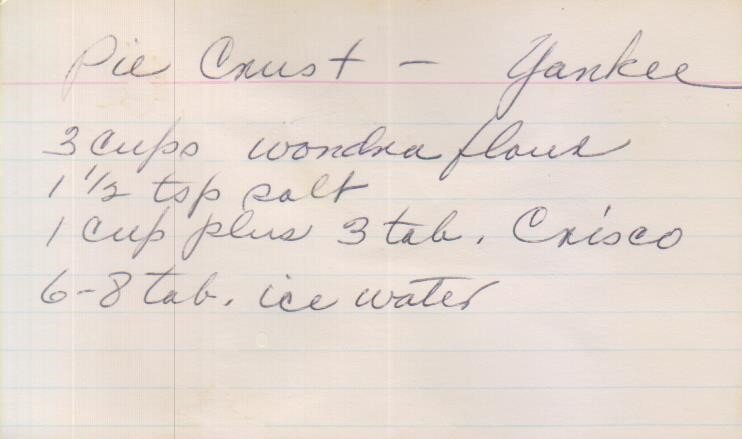 Pie Crust - Yankee
3 cups wondra flour
1 1/2 tsp salt
1 cup plus 3 tab. Crisco
6-8 tab. ice water